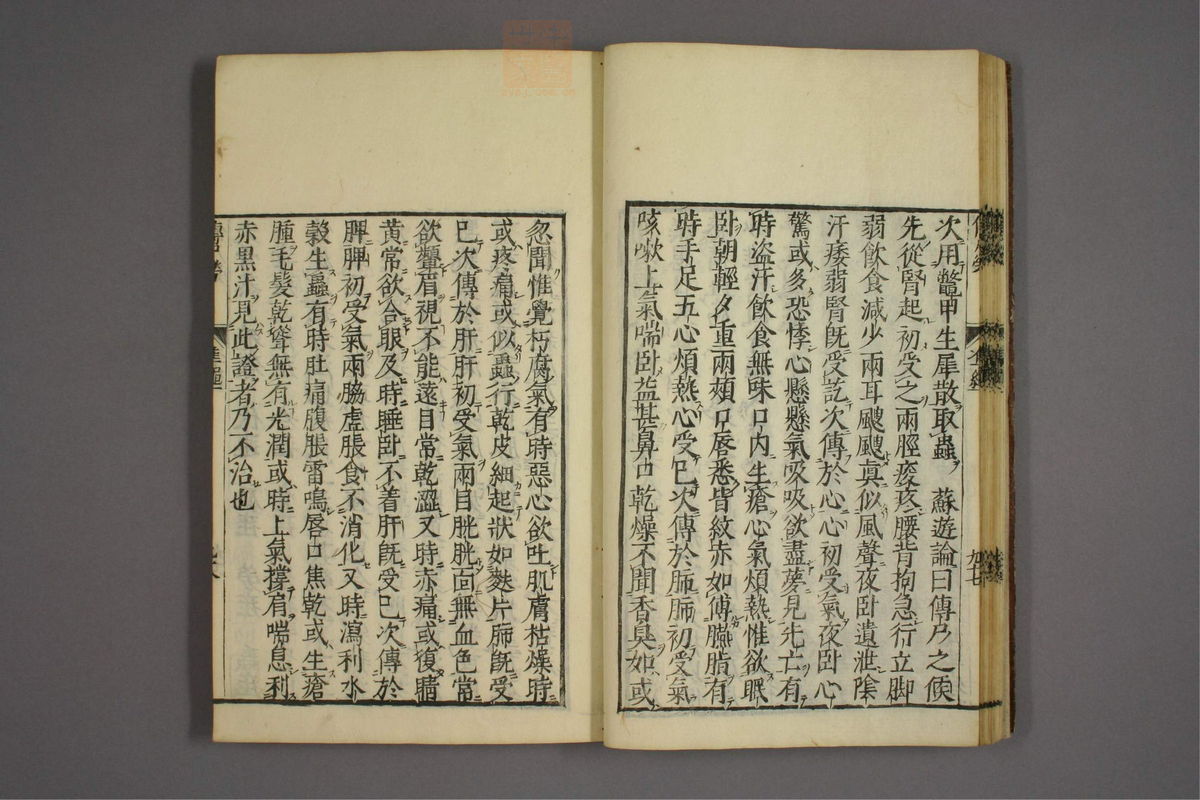 次用鼈甲生犀散取蟲 蘇遊論曰傳尸之候
先從腎起初受之兩脛痠疼腰背拘急行立脚
弱飲食減少兩耳颼颼真似風聲夜卧遺泄陰
汗痿弱腎既受訖次傳於心心初受氣夜卧心
驚或多恐悸心懸懸氣吸吸欲盡夢見先亡有
時盜汗飲食無味口内生瘡心氣煩熱惟欲眠
卧朝輕夕重兩頰口唇悉皆紋赤如傅臙脂有
時手足五心煩熱心受已次傳於肺肺初受氣
咳嗽上氣喘卧益甚鼻口乾燥不聞香臭如或
忽聞惟覺朽腐氣有時惡心欲吐肌膚枯燥時
或疼痛或似蟲行乾皮細起狀如麩片肺既受
已次傳於肝肝初受氣兩目胱胱面無血色常
欲顰眉視不能遠目常乾澀又時赤痛或復睛
黃常欲合眼及時睡卧不着肝既受已次傳於
脾脾初受氣兩脇虛脹食不消化又時瀉利水
穀生蟲有時肚痛腹脹雷鳴唇口焦乾或生瘡
腫毛髮乾聳無有光潤或時上氣撐肩喘息利
赤黑汁見此證者乃不治也